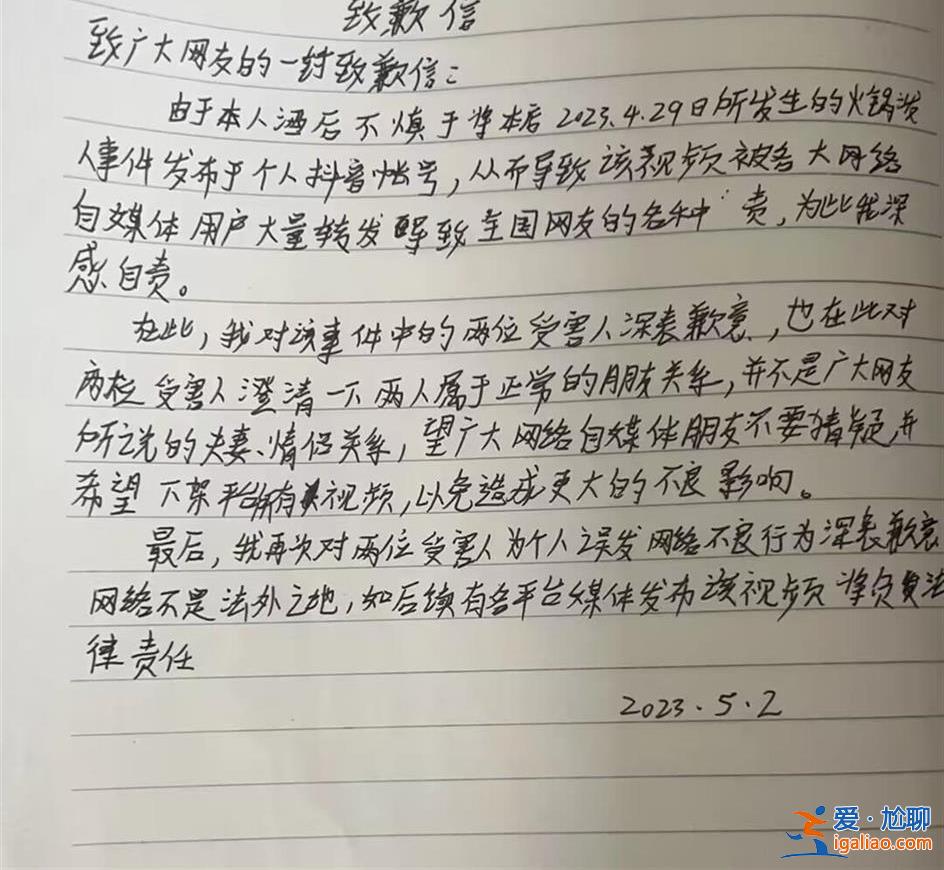 致歉信
致广大网友的一封致歉信：
由于本人酒后不慎于将本店2023.4.29日所发生的火锅泼
人事件发布于个人抖音帐号，从而导致该视频被各大网络
自媒体用户大量转发导致全国网友的各种 责，为此我深
感自责。
在此，我对该事件中的两位受害人深表歉意，也在此对
两位受害人澄清一下两人属于正常的朋友关系，并不是广大网友
所说的夫妻、情侣关系，望广大网络自媒体朋友不要猜疑，并
希望下架平台所有视频，以免造成更大的不良影响。
最后，我再次对两位受害人为个人误发网络不良行为深表歉意
网络不是法外之地，如后续有各平台媒体发布该视频将负责法
律责任
2023.5.2
爱·尬聊
igaliao.com